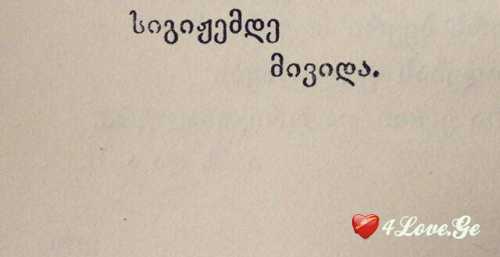 სიგიჟემდე
მივიდა.
4Love.Ge